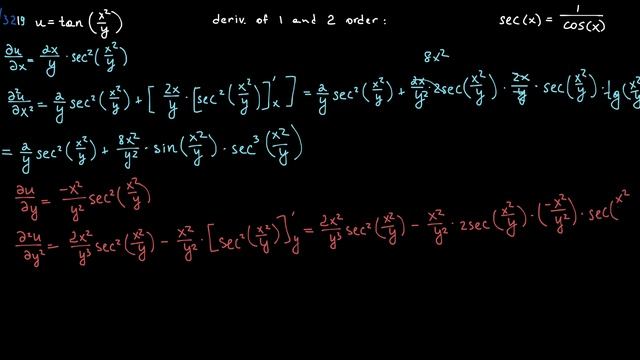 /3219 u = tan(x²/y) deriv. of 1 and 2 order: sec(x) = 1/cos(x)
8x²
∂u/∂x = 2x/y · sec²(x²/y)
∂²u/∂x² = 2/y sec²(x²/y) + [2x/y · [sec²(x²/y)]'ₓ] = 2/y sec²(x²/y) + 2x/y² · 2sec(x²/y) · 2x/y · sec(x²/y) · tg(x²/
= 2/y sec²(x²/y) + 8x²/y² · sin(x²/y) · sec³(x²/y)
∂u/∂y = -x²/y² sec²(x²/y)
∂²u/∂y² = 2x²/y³ sec²(x²/y) - x²/y² · [sec²(x²/y)]'_y = 2x²/y³ sec²(x²/y) - x²/y² · 2sec(x²/y) · (-x²/y²) · sec(x²